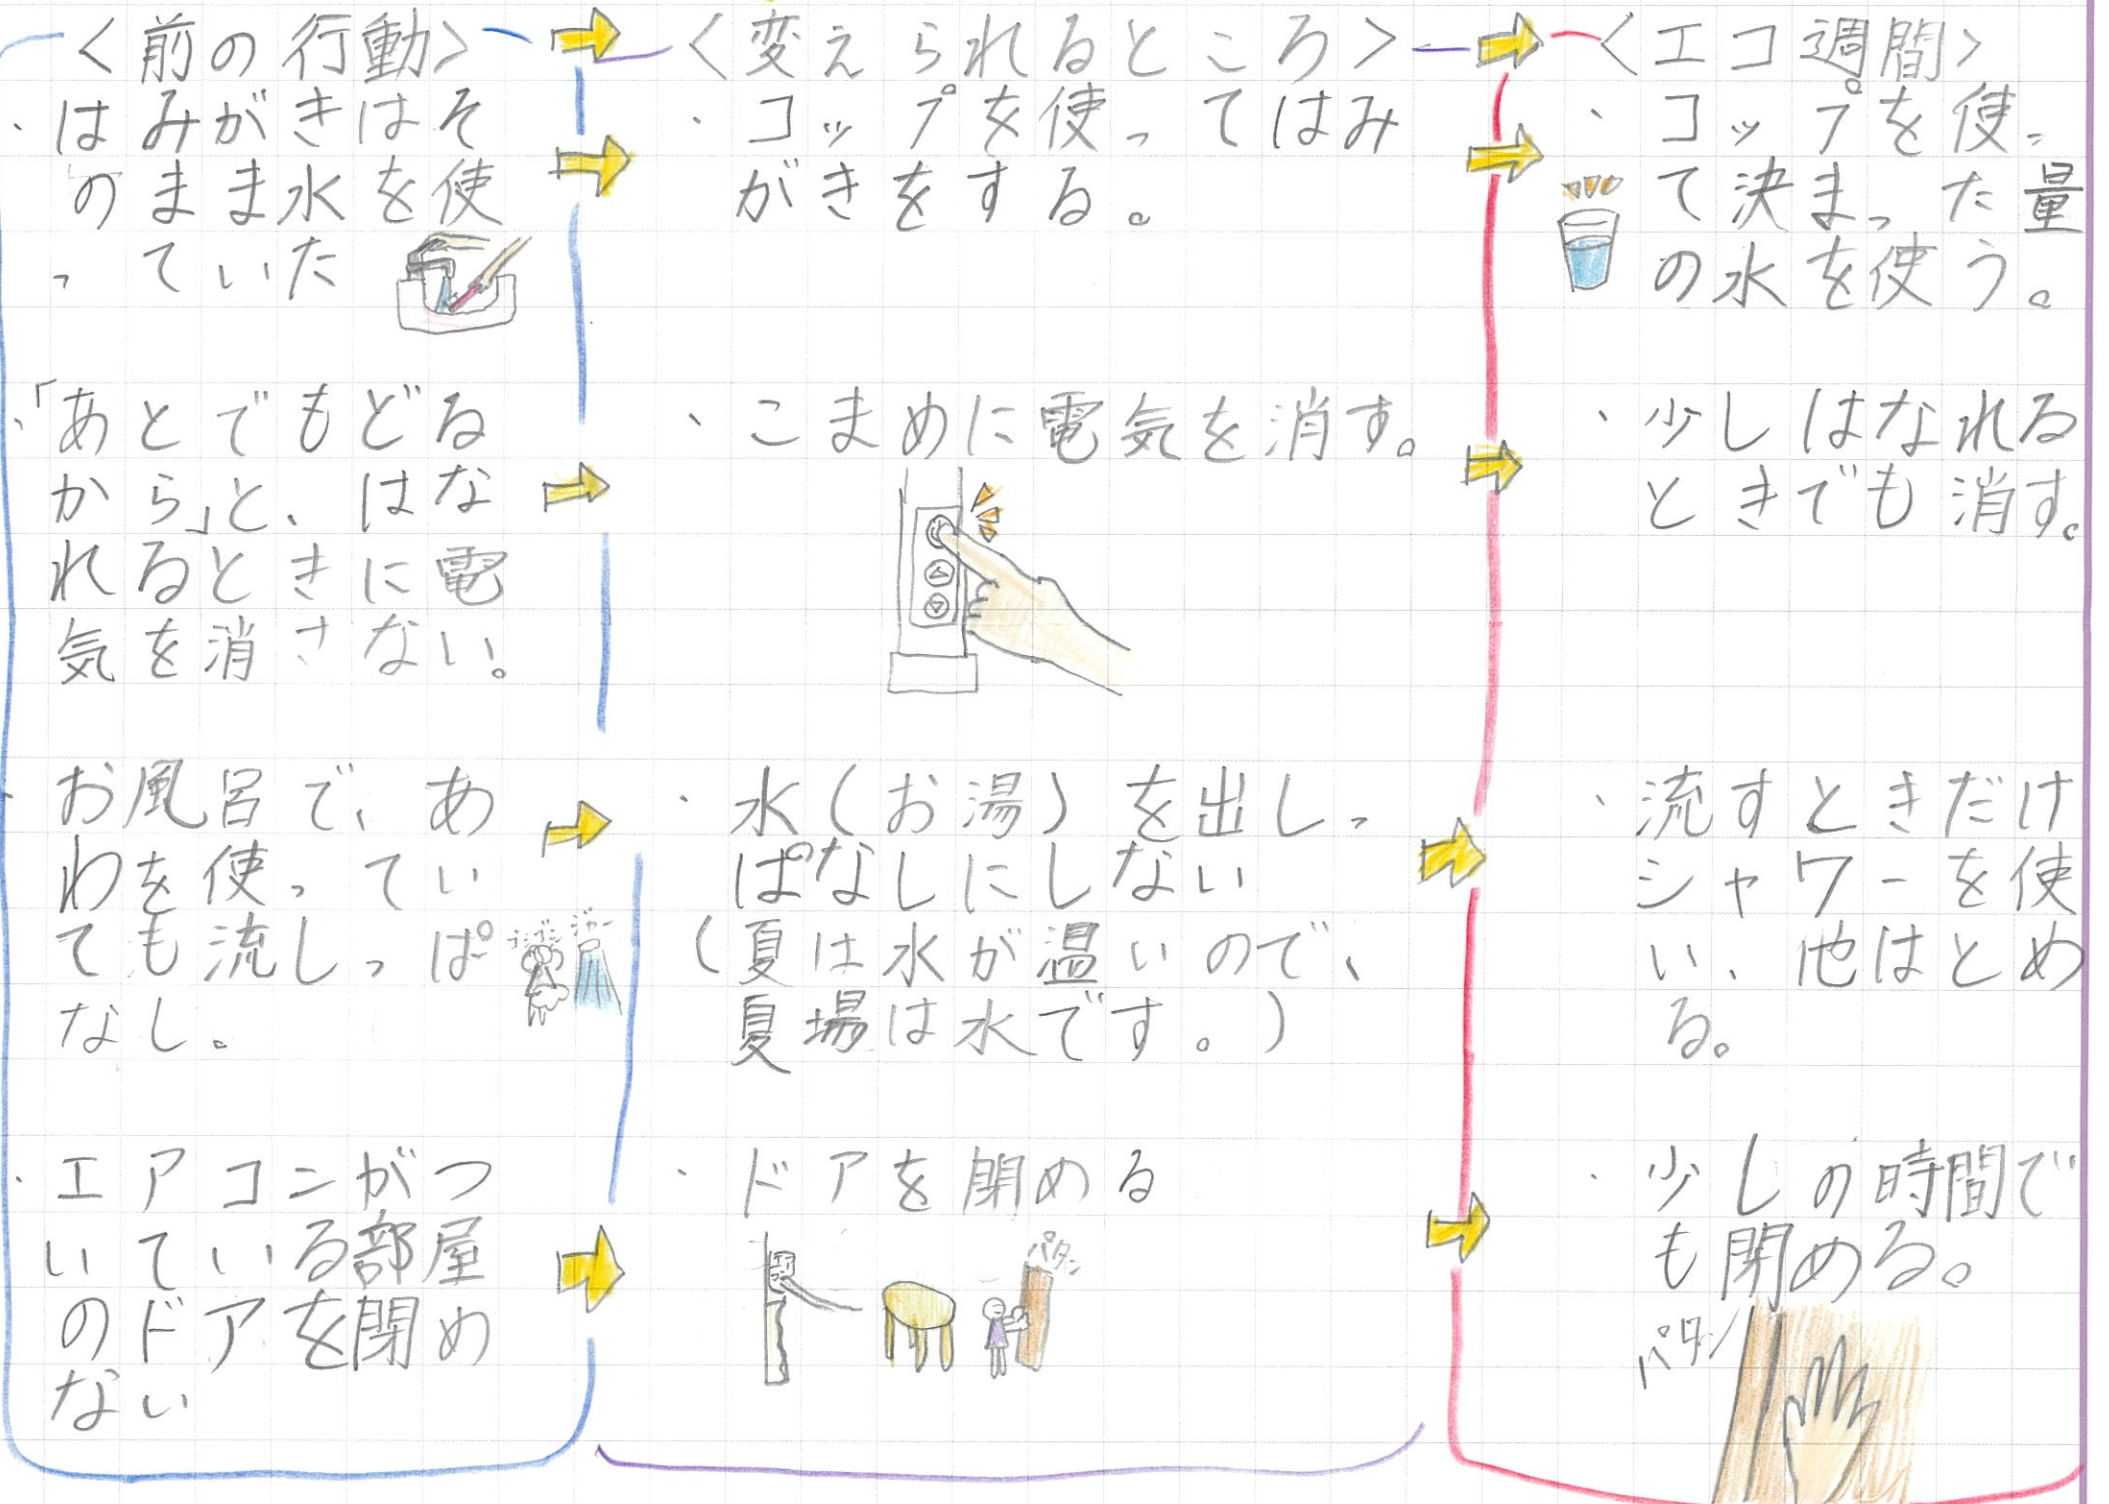 <前の行動>
・はみがきはそ
のまま水を使
っていた
・「あとでもどる
から」と、はな
れるときに電
気を消さない。
・お風呂で、あ
わを使ってい
ても流しっぱ
なし。
ゴシゴシ
ジャー
・エアコンがつ
いている部屋
のドアを閉め
ない
<変えられるところ>
・コップを使ってはみ
がきをする。
・こまめに電気を消す。
・水(お湯)を出しっ
ぱなしにしない
(夏は水が温いので、
夏場は水です。)
・ドアを閉める
パタン
<エコ週間>
・コップを使っ
て決まった量
の水を使う。
・少しはなれる
ときでも消す。
・流すときだけ
シャワーを使
い、他はとめ
る。
・少しの時間で
も閉める。
パタン